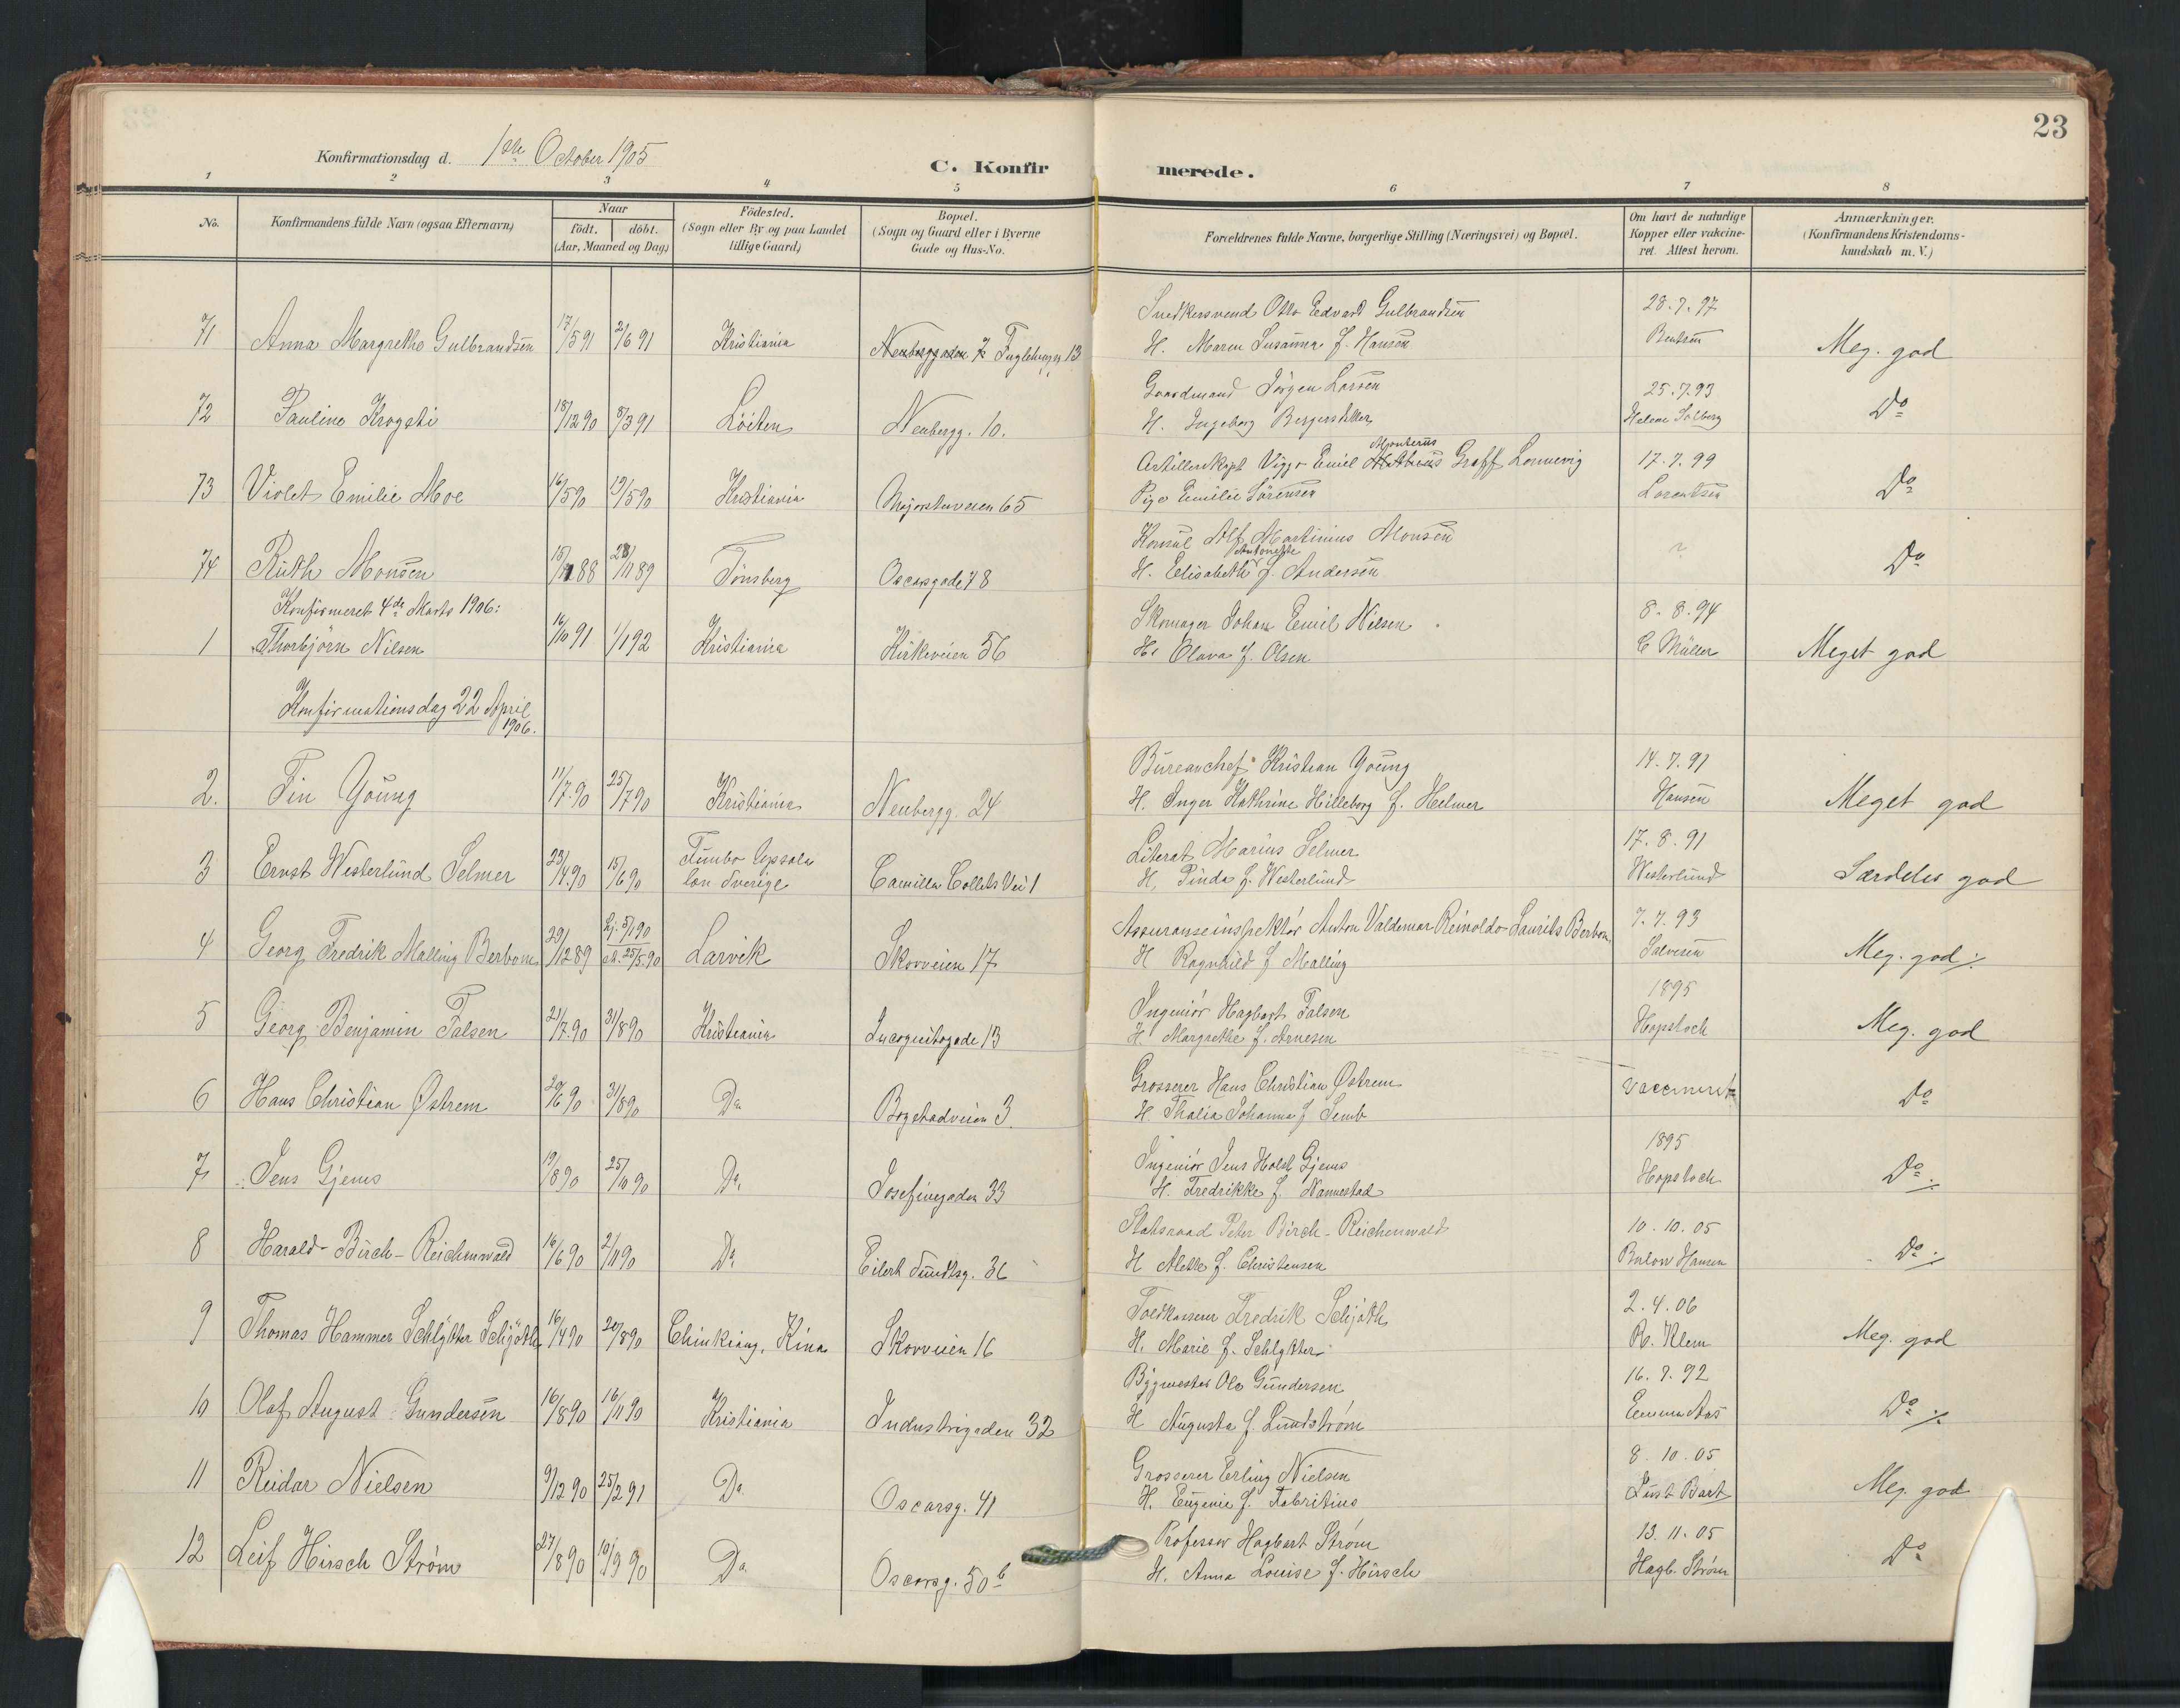 23
Konfirmationsdag d. 1ste October 1905
C. Konfirmerede.
1 2 3 4 5 6 7 8
No.
Konfirmandens fulde Navn (ogsaa Efternavn)
Naar
födt. | döbt.
(Aar, Maaned og Dag)
Födested.
(Sogn eller By og paa Landet
tillige Gaard)
Bopæl.
(Sogn og Gaard eller i Byerne
Gade og Hus-No.
Forældrenes fulde Navne, borgerlige Stilling (Næringsvei) og Bopæl.
Om havt de naturlige
Kopper eller vakcine-
ret. Attest herom.
Anmærkninger.
(Konfirmandens Kristendoms-
kundskab m. V.)
71 Anna Margrethe Gulbrandsen 17/5 91 2/6 91 Kristiania Neubergsgaden 7 Fuglehaugg 13
Snedkersvend Otto Edvard Gulbrandsen
H. Maren Susanna f. Hansen
28.7.97
Bentsen
Meg. god
72 Pauline Krogsti 18/12 90 8/3 91 Löiten Neubergg. 10.
Gaardmand Jörgen Larsen
H. Ingeborg
25.7.93
Helene Solberg
Do
73 Violet Emilie Moe 16/5 90 19/5 90 Kristiania Majorstuveien 65
Artillerikapt Viggo Emil Graff Lonnevig
Pige Emilie Sörensen
17.7.99
Lorentsen
Do
74 Ruth Monsen 15/11 88 28/11 89 Tönsberg Oscarsgade 78
Konsul Alf Martinius Monsen
H. Elisabeth Antonette f. Andersen
?
Do
Konfirmeret 4de Marts 1906:
1 Thorbjörn Nilsen 16/10 91 1/1 92 Kristiania Kirkeveien 56
Skomager Johan Emil Nilsen
H. Olava f. Olsen
8.8.94
C Müller
Meget god
Konfirmationsdag 22 April
1906.
2. Fin Young 11/7.90 25/7 90 Kristiania Neubergg. 24
Bureauchef Kristian Young
H. Inger Kathrine Hilleborg f. Helmer
14.7.91
Hansen
Meget god
3 Ernst Westerlund Selmer 23/4.90 15/6 90 Funbo Upsala
län Sverige Camilla Colletts Vei 1
Literat Marius Selmer
H. Pinda f. Westerlund
17.8.91
Westerlund
Særdeles god
4 Georg Fredrik Malling Berbom 29/12 89 hj. 5/1 90
st. 25/5.90 Larvik Skovveien 17
Assuranseinspektör Anton Valdemar Reinoldo Laurits Berbom
H Ragnhild f Malling
7.7.93
Salvesen
Meg. god ./.
5 Georg Benjamin Falsen 21/7.90 31/8 90 Kristiania Incognitogade 13
Ingeniör Hagbart Falsen
H Margrethe f. Arnesen
1895
Hopstock
Meg. god
6 Hans Christian Østrem 20/6 90 31/8 90 Do Bogstadveien 3.
Grosserer Hans Christian Østrem
H. Thalia Johanna f Semb
Vaccineret
Do
7 Jens Gjems 19/8 90 25/10 90 Do Josefinegaden 33
Ingeniör Jens Holst Gjems
H. Fredrikke f. Nannestad
1895
Hopstock
Do ./.
8 Harald Birch-Reichenwald 16/6 90 2/11 90 Do Eilert Sundtsg. 36
Statsraad Peter Birch-Reichenwald
H Alette f. Christensen
10.10.05
Bulow Hansen
Do ./.
9 Thomas Hammer Schlytter Schjöth 16/4 90 20/8 90 Chinkiang, Kina Skovveien 16
Toldkasserer Fredrik Schjöth
H. Marie f. Schlytter
2.4.06
R. Klem
Meg. god
10 Olaf August Gundersen 16/8 90 16/11 90 Kristiania Industrigaden 32
Bygmester Ole Gundersen
H Augusta f. Lundström
16.7.92
Emma Aas
Do ./.
11 Reidar Nielsen 9/12 90 25/2 91 Do Oscarsg. 41
Grosserer Erling Nielsen
H. Eugenie f. Fabritius
8.10.05
Just Bart
Meg. god
12 Leif Hirsch Ström 27/8 90 10/9 90 Do Oscarsg. 50 b
Professor Hagbart Ström
H. Anna Louise f. Hirsch
13.11.05
Hagb. Ström
Do